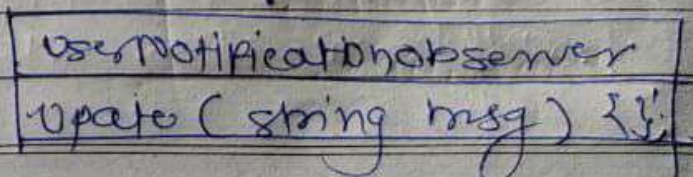 userNotificationobserver
upate (string msg) {};